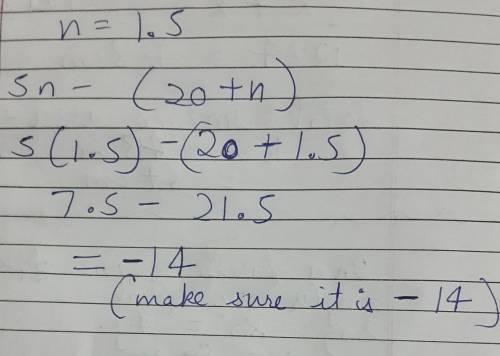 n = 1.5
5n - (20 + n)
5(1.5) - (20 + 1.5)
7.5 - 21.5
= -14
(make sure it is - 14)